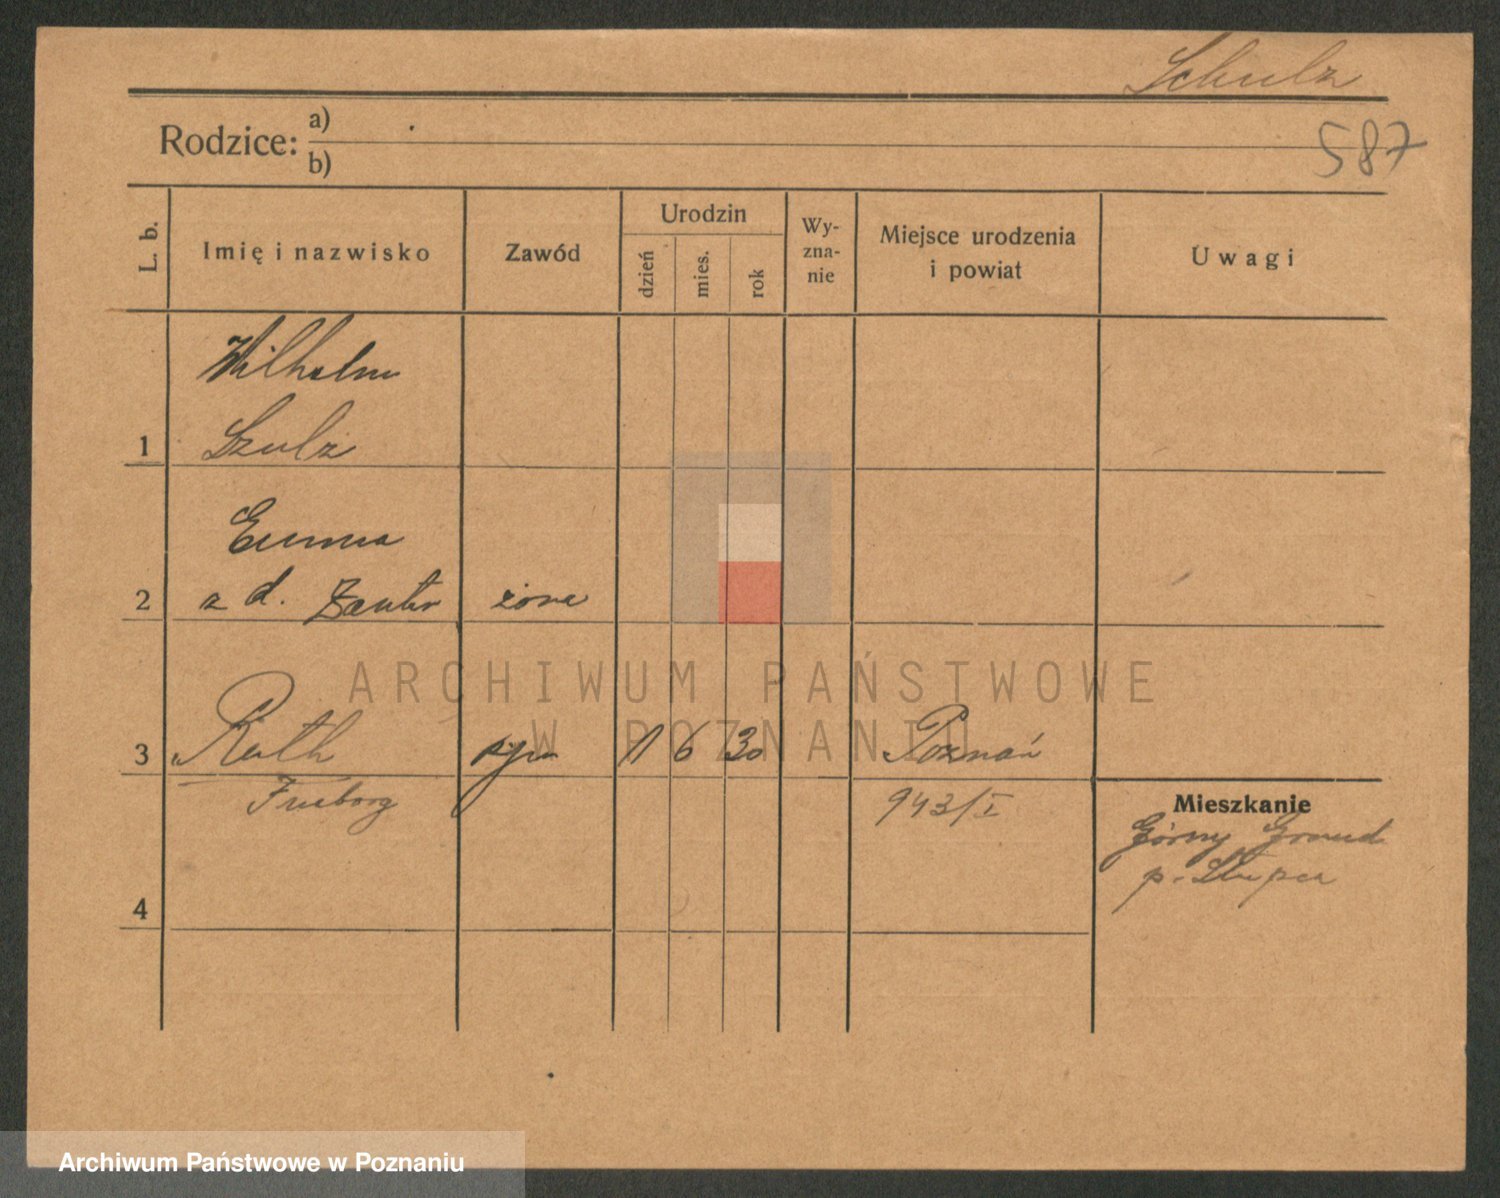 Schulz
587
Rodzice: a)
b)
L. b.
Imię i nazwisko
Zawód
Urodzin
dzień
mies.
rok
Wy-
zna-
nie
Miejsce urodzenia
i powiat
Uwagi
Wilhelm
1 Szulz
Emma
2 z d. żona
3 Ruth 1 6 30 Poznań
943/I
Mieszkanie
Górny Grund
p. Słupca
4
ARCHIWUM PAŃSTWOWE
W POZNANIU
Archiwum Państwowe w Poznaniu